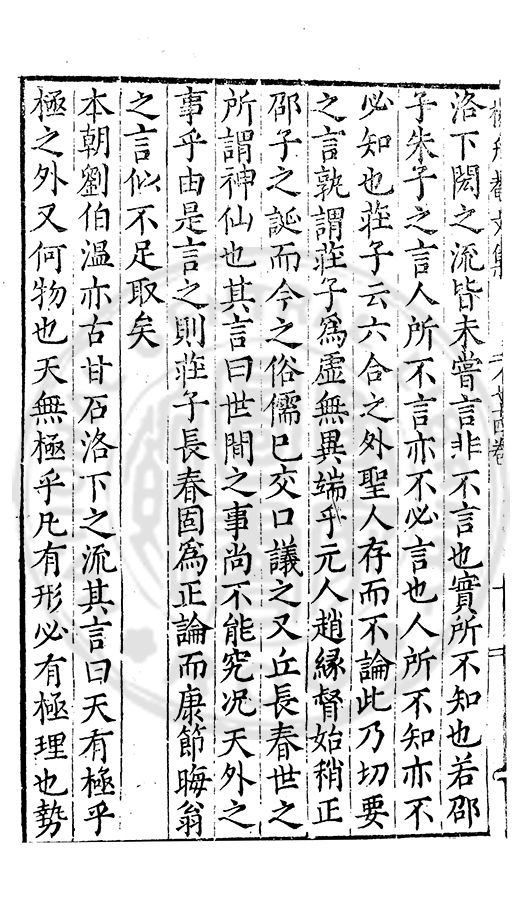 洛下閎之流皆未嘗言非不言也實所不知也若邵
子朱子之言人所不言亦不必言也人所不知亦不
必知也莊子云六合之外聖人存而不論此乃切要
之言孰謂莊子為虛無異端乎元人趙緣督始稍正
邵子之誕而今之俗儒已交口議之又丘長春世之
所謂神仙也其言曰世間之事尚不能究况天外之
事乎由是言之則莊子長春固為正論而康節晦翁
之言似不足取矣
本朝劉伯溫亦古甘石洛下之流其言曰天有極乎
極之外又何物也天無極乎凡有形必有極理也勢